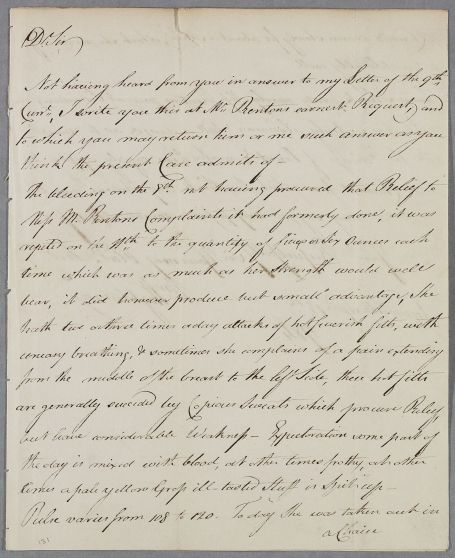 Dr. Sir
Not having heard from you in answer to my Letter of the 9th.
Curt., I write you this at Mr. Rentons earnest Request, and
to which you may return him or me such answer as you
think the present Case admits of –
the bleeding on the 8th. not having procured that Relief to
Miss M. Rentons Complaints it had formerly done, it was
repeted on the 11th to the quantity of five or six Ounces each
time which was as much as her Strength would well
bear, it did however produce but small advantage, She
hath two or three times a day attacks of hot feverish fits, with
uneasy breathing, & sometimes she complains of a pain extending
from the middle of the breast to the left Side, these hot fitts
are generally succeeded by Copious Sweats which procure Relief,
but leave considerable Weakness – Expectoration some part of
the day is mixed with blood, at other times frothy, at other
times a pale yellow Gross ill-tasted Stuff is Spit up –
Pulse varies from 108 to 120. To day She was taken out in
a Chaise
131